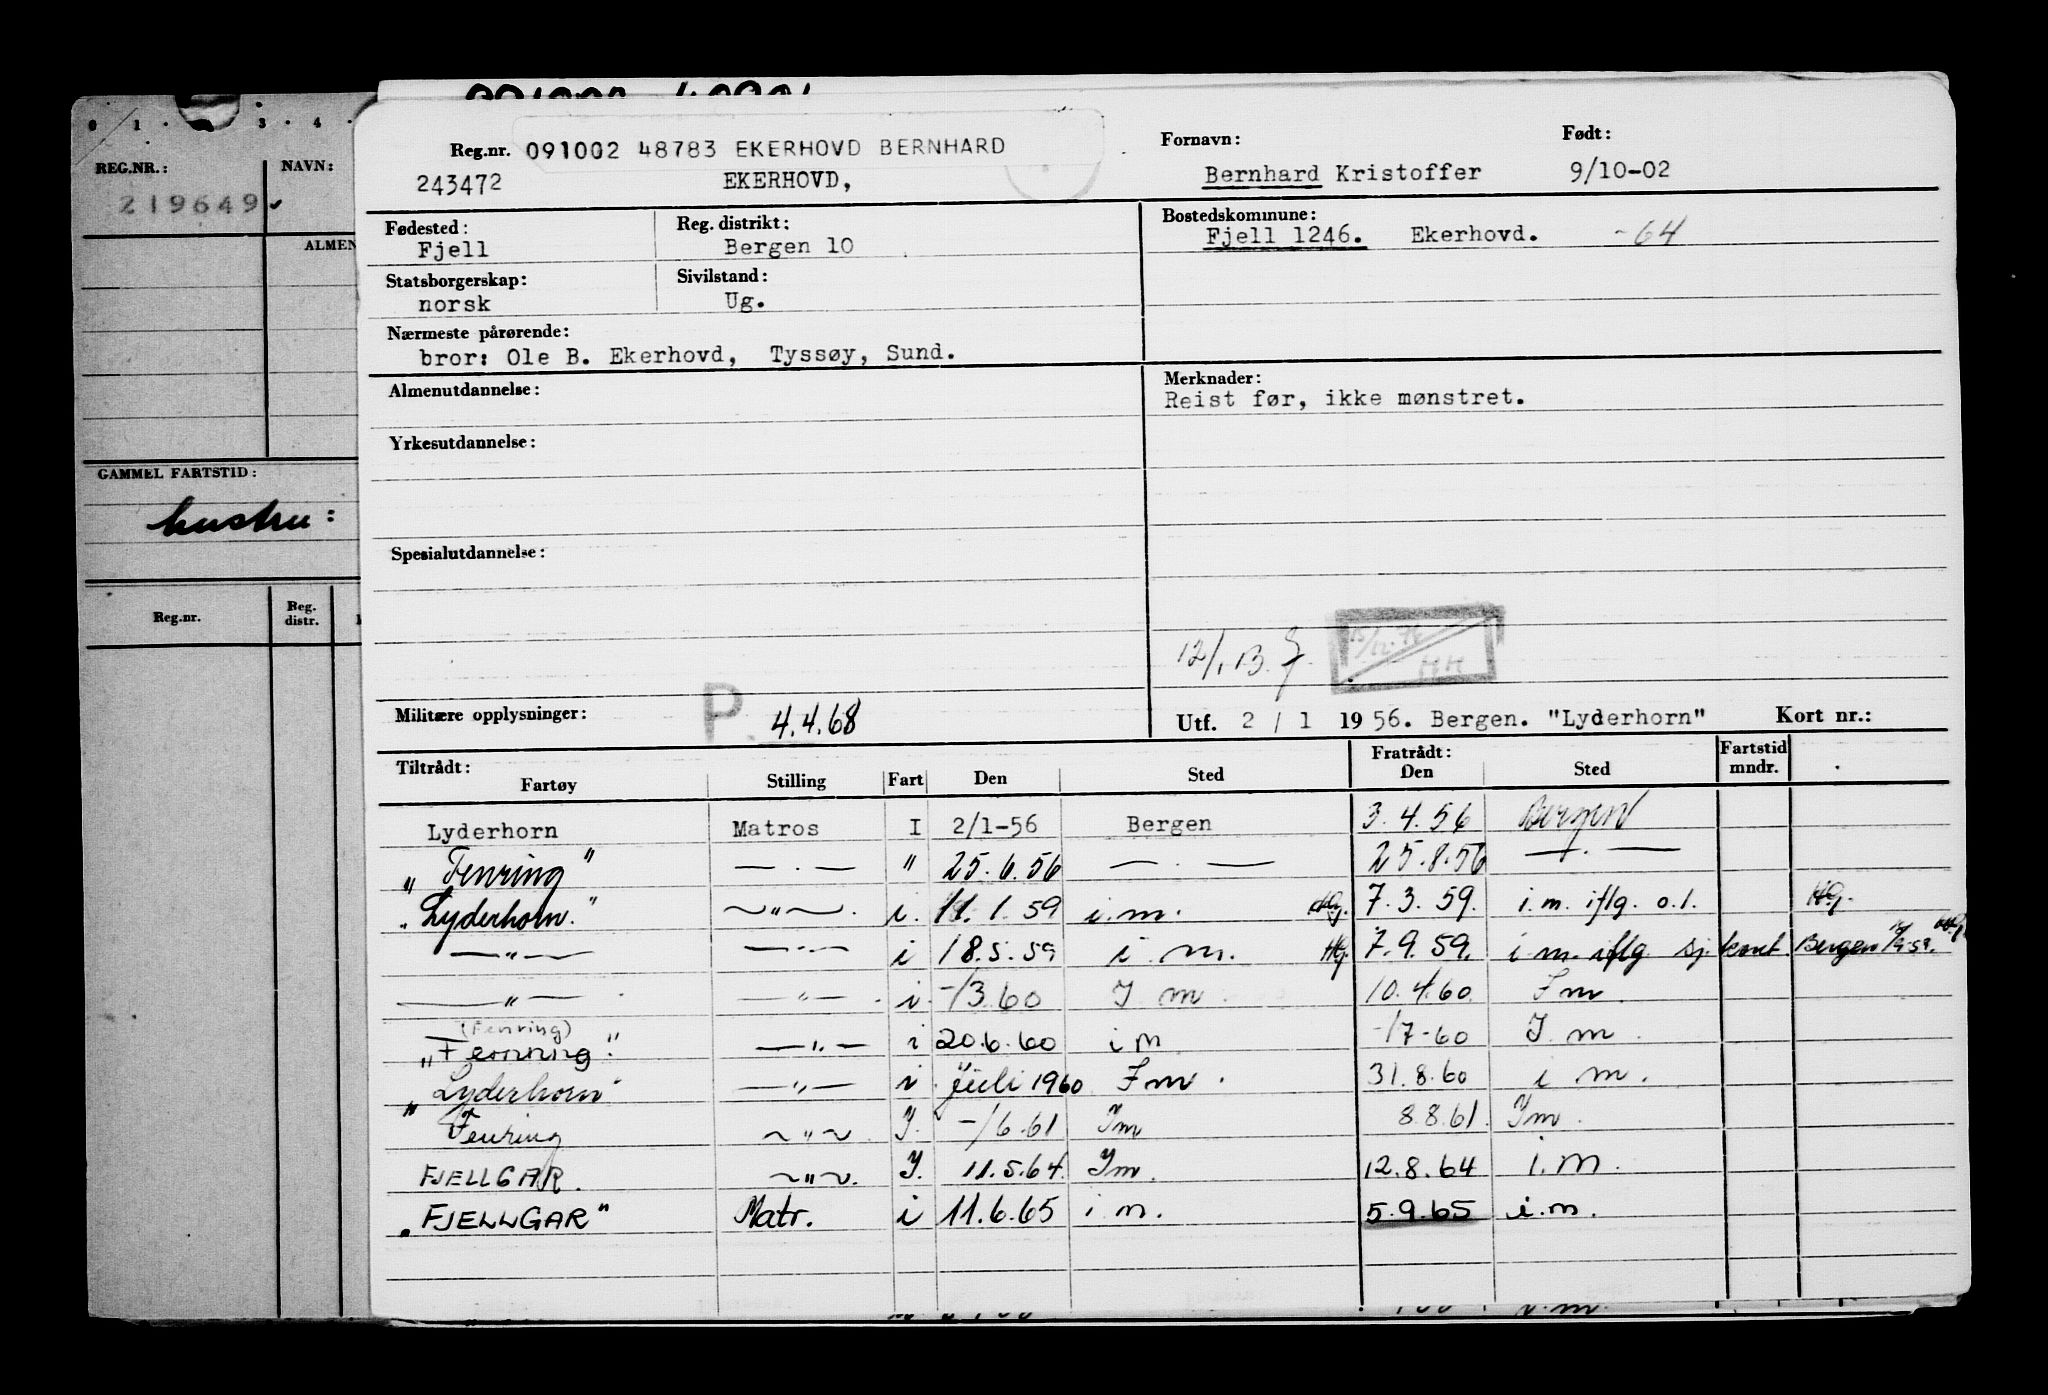 0 1 3 4
REG.NR.: NAVN:
219649
ALMEN
GAMMEL FARTSTID:
hustru:
Reg.nr. Reg. distr.
Reg.nr. 091002 48783 EKERHOVD BERNHARD Fornavn: Født:
243472 EKERHOVD, Bernhard Kristoffer 9/10-02
Fødested: Reg. distrikt: Bostedskommune:
Fjell Bergen 10 Fjell 1246. Ekerhovd. -64
Statsborgerskap: Sivilstand:
norsk Ug.
Nærmeste pårørende:
bror: Ole B. Ekerhovd, Tyssøy, Sund.
Almenutdannelse: Merknader:
Reist før, ikke mønstret.
Yrkesutdannelse:
Spesialutdannelse:
12/1 B.
Militære opplysninger: P. 4.4.68 Utf. 2 / 1 1956. Bergen. "Lyderhorn" Kort nr.:
Tiltrådt: Fratrådt: Fartstid
Fartøy Stilling Fart Den Sted Den Sted mndr.
Lyderhorn Matros I 2/1-56 Bergen 3.4.56 Bergen
"Fenring" — . — " 25.6.56 — . — 25.8.56 — . —
"Lyderhorn." ~"~. i. 11.1.59 i.m. HG. 7.3.59. i.m. iflg. o.l. HG.
— " — — " — i 18.5.59 i.m. HG. 7.9.59. i m. iflg. Sj kont. Bergen
— " — — " — . i. -/3.60 I m. 10.4.60. I m.
(Fenring)
"Femring." — " — i 20.6.60 i m -/7-60 I m.
"Lyderhorn" — " — i. Juli 1960 I m. 31.8.60 i m.
Fenring ~ " ~ I. -/6.61 Im 8.8.61. Im.
FJELLGAR. ~ " ~. I. 11.5.64. Im. 12.8.64 i.m.
"FJELLGAR" Matr. i 11.6.65 i.m. 5.9.65 i.m.